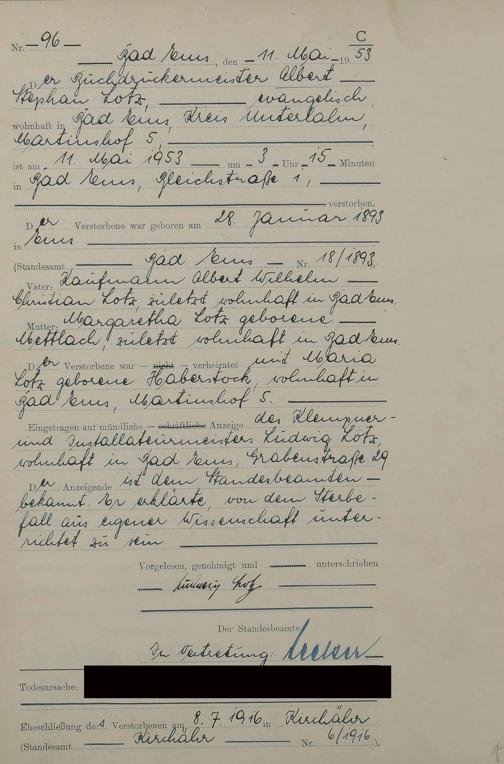 C
Nr. 96
Bad Ems, den 11. Mai 19 53
Der Buchdruckermeister Albert
Stephan Lotz, evangelisch,
wohnhaft in Bad Ems, Kreis Unterlahn,
Martinshof 5,
ist am 11. Mai 1953 um 3 Uhr 15 Minuten
in Bad Ems, Bleichstraße 1,
verstorben.
Der Verstorbene war geboren am 28. Januar 1893
in Ems
(Standesamt Bad Ems Nr. 18/1893.
Vater: Kaufmann Albert Wilhelm
Christian Lotz, zuletzt wohnhaft in Bad Ems.
Mutter: Margaretha Lotz geborene
Mettlach, zuletzt wohnhaft in Bad Ems.
Der Verstorbene war — nicht — verheiratet mit Maria
Lotz geborene Haberstock, wohnhaft in
Bad Ems, Martinshof 5.
Eingetragen auf mündliche — schriftliche — Anzeige des Klempner-
und Installateurmeisters Ludwig Lotz,
wohnhaft in Bad Ems, Grabenstraße 29.
Der Anzeigende ist dem Standesbeamten
bekannt. Er erklärte, von dem Sterbe-
fall aus eigener Wissenschaft unter-
richtet zu sein
Vorgelesen, genehmigt und unterschrieben
Ludwig Lotz
Der Standesbeamte
In Vertretung:
Todesursache:
Eheschließung des Verstorbenen am 8.7.1916 in Kirchähr
(Standesamt Kirchähr Nr. 6/1916).